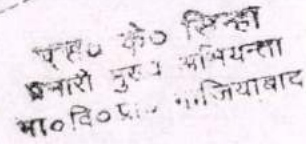 एस० के० सिन्हा
प्रभारी मुख्य अभियन्ता
गा०वि०प्रा० गाजियाबाद